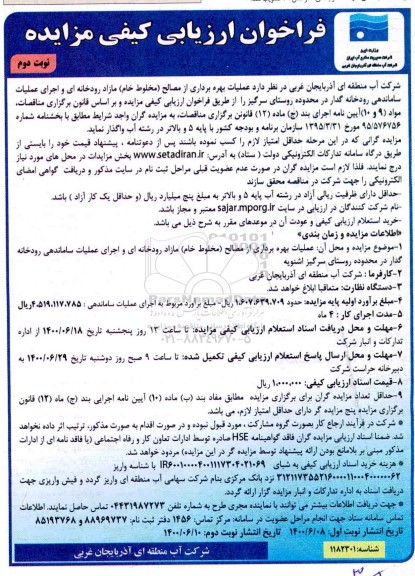 فراخوان ارزیابی کیفی مزایده
نوبت دوم
وزارت نیرو
شرکت مدیریت منابع آب ایران
شرکت آب منطقه ای آذربایجان غربی
شرکت آب منطقه ای آذربایجان غربی در نظر دارد عملیات بهره برداری از مصالح (مخلوط خام) مازاد رودخانه ای و اجرای عملیات
ساماندهی رودخانه گدار در محدوده روستای سرگیز را از طریق فراخوان ارزیابی کیفی مزایده و بر اساس قانون برگزاری مناقصات،
مواد (۹ و ۱۰)آیین نامه اجرای بند (ج) ماده (۱۲) قانونن برگزاری مناقصات، به مزایده گران واجد شرایط مطابق با بخشنامه شماره
۹۵/۵۷۶۷۵۶ مورخ ۱۳۹۵/۳/۳۱ سازمان برنامه و بودجه کشور با پایه ۵ و بالاتر در رشته آب واگذار نماید.
مزایده گرانی که در این مرحله حداقل امتیاز لازم را کسب نموده باشند پس از دعوتنامه ، پیشنهاد قیمت خود را بایستی از
طریق درگاه سامانه تدارکات الکترونیکی دولت ( ستاد) به آدرس: www.setadiran.ir بخش مزایدات در محل های مورد نیاز
درج نمایند. فلذا لازم است مزایده گران در صورت عدم عضویت قبلی مراحل ثبت نام در سایت مذکور و دریافت گواهی امضای
الکترونیکی را جهت شرکت در مناقصه محقق سازند
-حداقل دارای ظرفیت ریالی آزاد در رشته آب پایه ۵ و بالاتر به مبلغ پنج میلیارد ریال (و حداقل یک کار آزاد ) باشد.
-نام شرکت کنندگان در ارزیابی در سایت sajar.mporg.ir معتبر و مجاز باشد.
-خرید استعلام ارزیابی کیفی و عودت آن در موعدهای مقرر به شرح ذیل می باشد.
«اطلاعات مزایده و زمان بندی»
۱-موضوع مزایده و محل آن: عملیات بهره برداری از مصالح (مخلوط خام) مازاد رودخانه ای و اجرای عملیات ساماندهی رودخانه
گدار در محدوده روستای سرگیز اشنویه
۲-کارفرما : شرکت آب منطقه ای آذربایجان غربی
۳-دستگاه نظارت: متعاقبا ابلاغ خواهد شد.
۴-مبلغ برآورد اولیه پایه مزایده: حدود ۱،۶۰۷،۶۳۹،۷۰۹ ریال- مبلغ برآورد مربوط به اجرای عملیات ساماندهی : ۴،۵۱۹،۱۱۷،۷۸۵ریال
۵-مدت اجرای کار : ۴ ماه
۶-مهلت و محل دریافت اسناد استعلام ارزیابی کیفی مزایده: تا ساعت ۱۳ روز پنجشنبه تاریخ ۱۴۰۰/۰۶/۱۸ از اداره
تدارکات و انبار شرکت
۷-مهلت و محل ارسال پاسخ استعلام ارزیابی کیفی تکمیل شده: تا ساعت ۹ صبح روز دوشنبه تاریخ ۱۴۰۰/۰۶/۲۹ به
دبیرخانه حراست شرکت
۸-قیمت اسناد ارزیابی کیفی: ۱،۰۰۰،۰۰۰ ریال
۹-حداقل تعداد مزایده گران برای برگزاری مزایده مطابق مفاد بند (ب) ماده (۱۰) آیین نامه اجرایی بند (ج) ماده (۱۲) قانون
برگزاری مزایده پنج مزایده گر دارای حداقل امتیاز لازم، می باشد.
* شرکت در فرآیند ارجاع کار بصورت گروه مشارکت ، مورد قبول نبوده و در صورت اقدام به صورت مذکور، ترتیب اثر داده نخواهد
شد ضمنا اسناد ارزیابی مزایده گران فاقد گواهینامه HSE صادره توسط ادارات تعاون کار و رفاه اجتماعی (یا فاقد نامه ای از ادارات
مذکور مبنی بر بلامانع بودن ارائه پیشنهاد توسط مزایده گر در این مزایده) مردود خواهد بود.
* هزینه خرید اسناد ارزیابی کیفی به شبای
نزد بانک مرکزی بنام شرکت سهامی آب منطقه ای واریز گردد و فیش واریزی جهت
دریافت اسناد به اداره تدارکات و انبار مزایده گزار ارائه گردد.
* جهت دریافت اطلاعات بیشتر می توانند با نماینده مجری طرح به شماره تلفن ۰۴۴۳۱۹۸۷۲۷۳ تماس حاصل نمایند. اطلاعات
تماس سامانه ستاد جهت انجام مراحل عضویت در سامانه: مرکز تماس: ۱۴۵۶ دفتر ثبت نام: ۸۸۹۶۹۷۳۷ و ۸۵۱۹۳۷۶۸
تاریخ انتشار نوبت اول: ۱۴۰۰/۶/۰۸ تاریخ انتشار نوبت دوم: ۱۴۰۰/۶/۱۰
شناسه: ۱۱۸۲۳۰۱
شرکت آب منطقه ای آذربایجان غربی